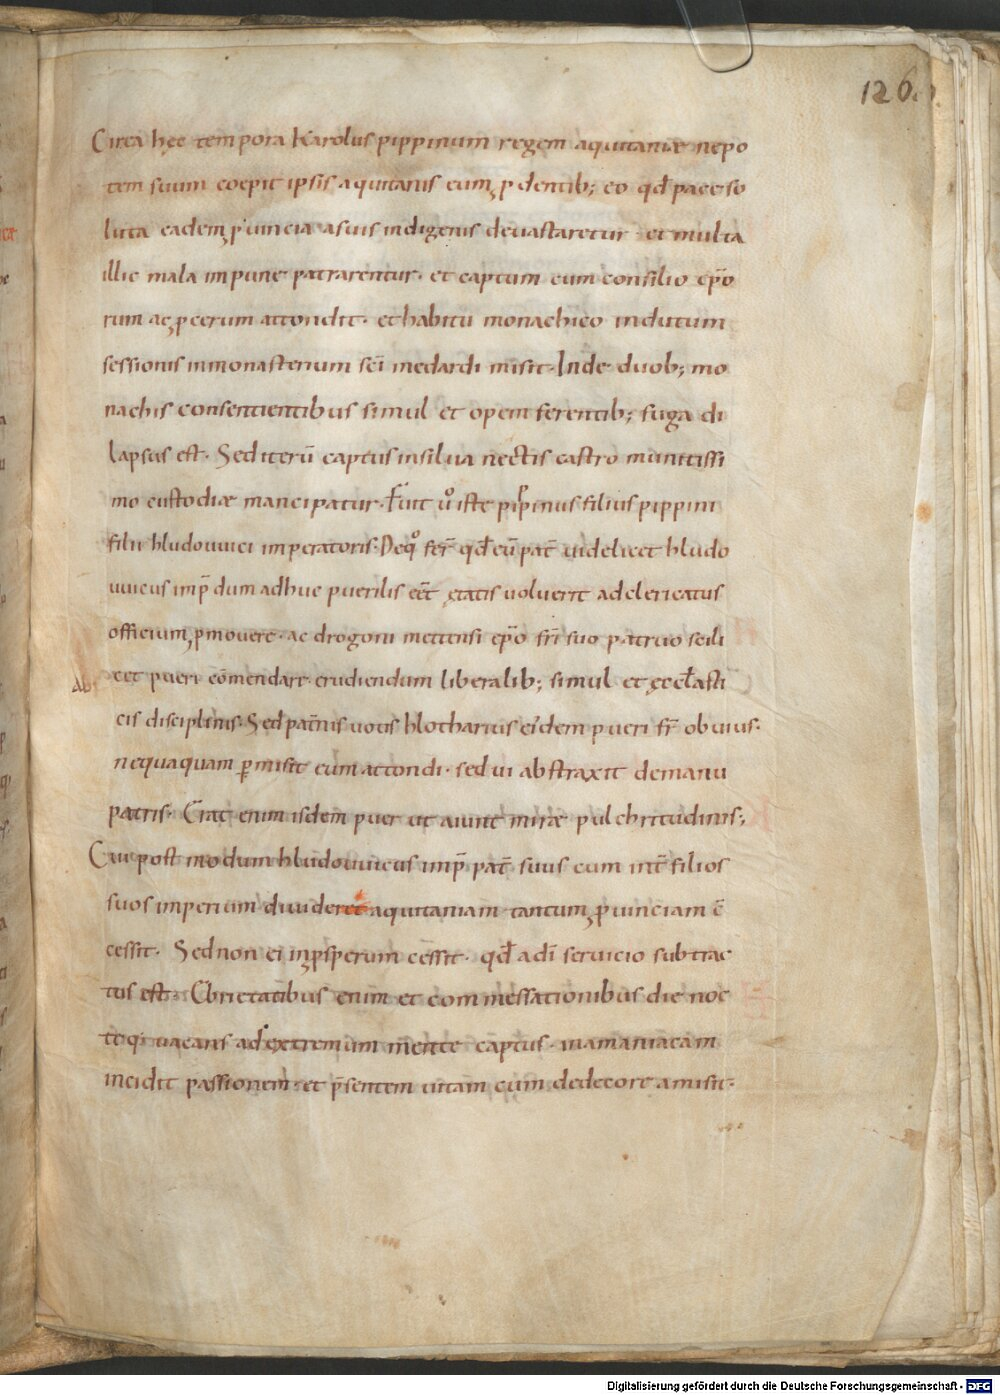 126.
Circa hęc tempora Karolus pippinum regem aquitaniæ nepo
tem suum coepit ipsis aquitanis eum ꝓdentib; eo qđ pace so
luta eadem ꝓuincia a suis indigenis deuastaretur et multa
illic mala impune patrarentur· et captum cum consilio ep̄o
rum ac ꝓcerum attondit· et habitu monachico indutum
sessionis in monasterium sc̄i medardi misit· Inde duob; mo
nachis consentientibus simul et opem ferentib; fuga di
lapsus est· Sed iterū captus in silua nectis castro munitissi
mo custodiæ mancipatur· Fuit ův iste pippinus filius pippini
filii hludouuici imperatoris· De qͦ fer̄ qđ eū pat̄ uidelicet hludo
uuicus imp̄ dum adhuc puerilis eēt ętatis uoluerit ad clericatus
officium ꝓmouere· ac drogoni mettensi ep̄o fr̄i suo patruo scili
cet pueri cōmendare· erudiendum liberalib; simul et ęccl̄asti
cis disciplinis· Sed pat̄nis uotis hlotharius eiͥdem pueri fr̄ obuius·
nequaquam ꝑmisit eum attondi· sed ui abstraxit de manu
patris· Erat enim isdem puer ut aiunt miræ pulchritudinis;
Cui post modum hludouuicus imp̄ pat̄ suus cum int̄ filios
suos imperium diuideret aquitaniam tantum ꝓuinciam c̄
cessit· Sed non ei in ꝓsperum cessit· qđ a dī seruicio subtrac
tus est· Ebrietatibus enim et commessationibus die noc
teq; uacans ad extremum mente captus· in maniacam
incidit passionem· et p̄sentem uitam cum dedecore amisit·
Digitalisierung gefördert durch die Deutsche Forschungsgemeinschaft - DFG